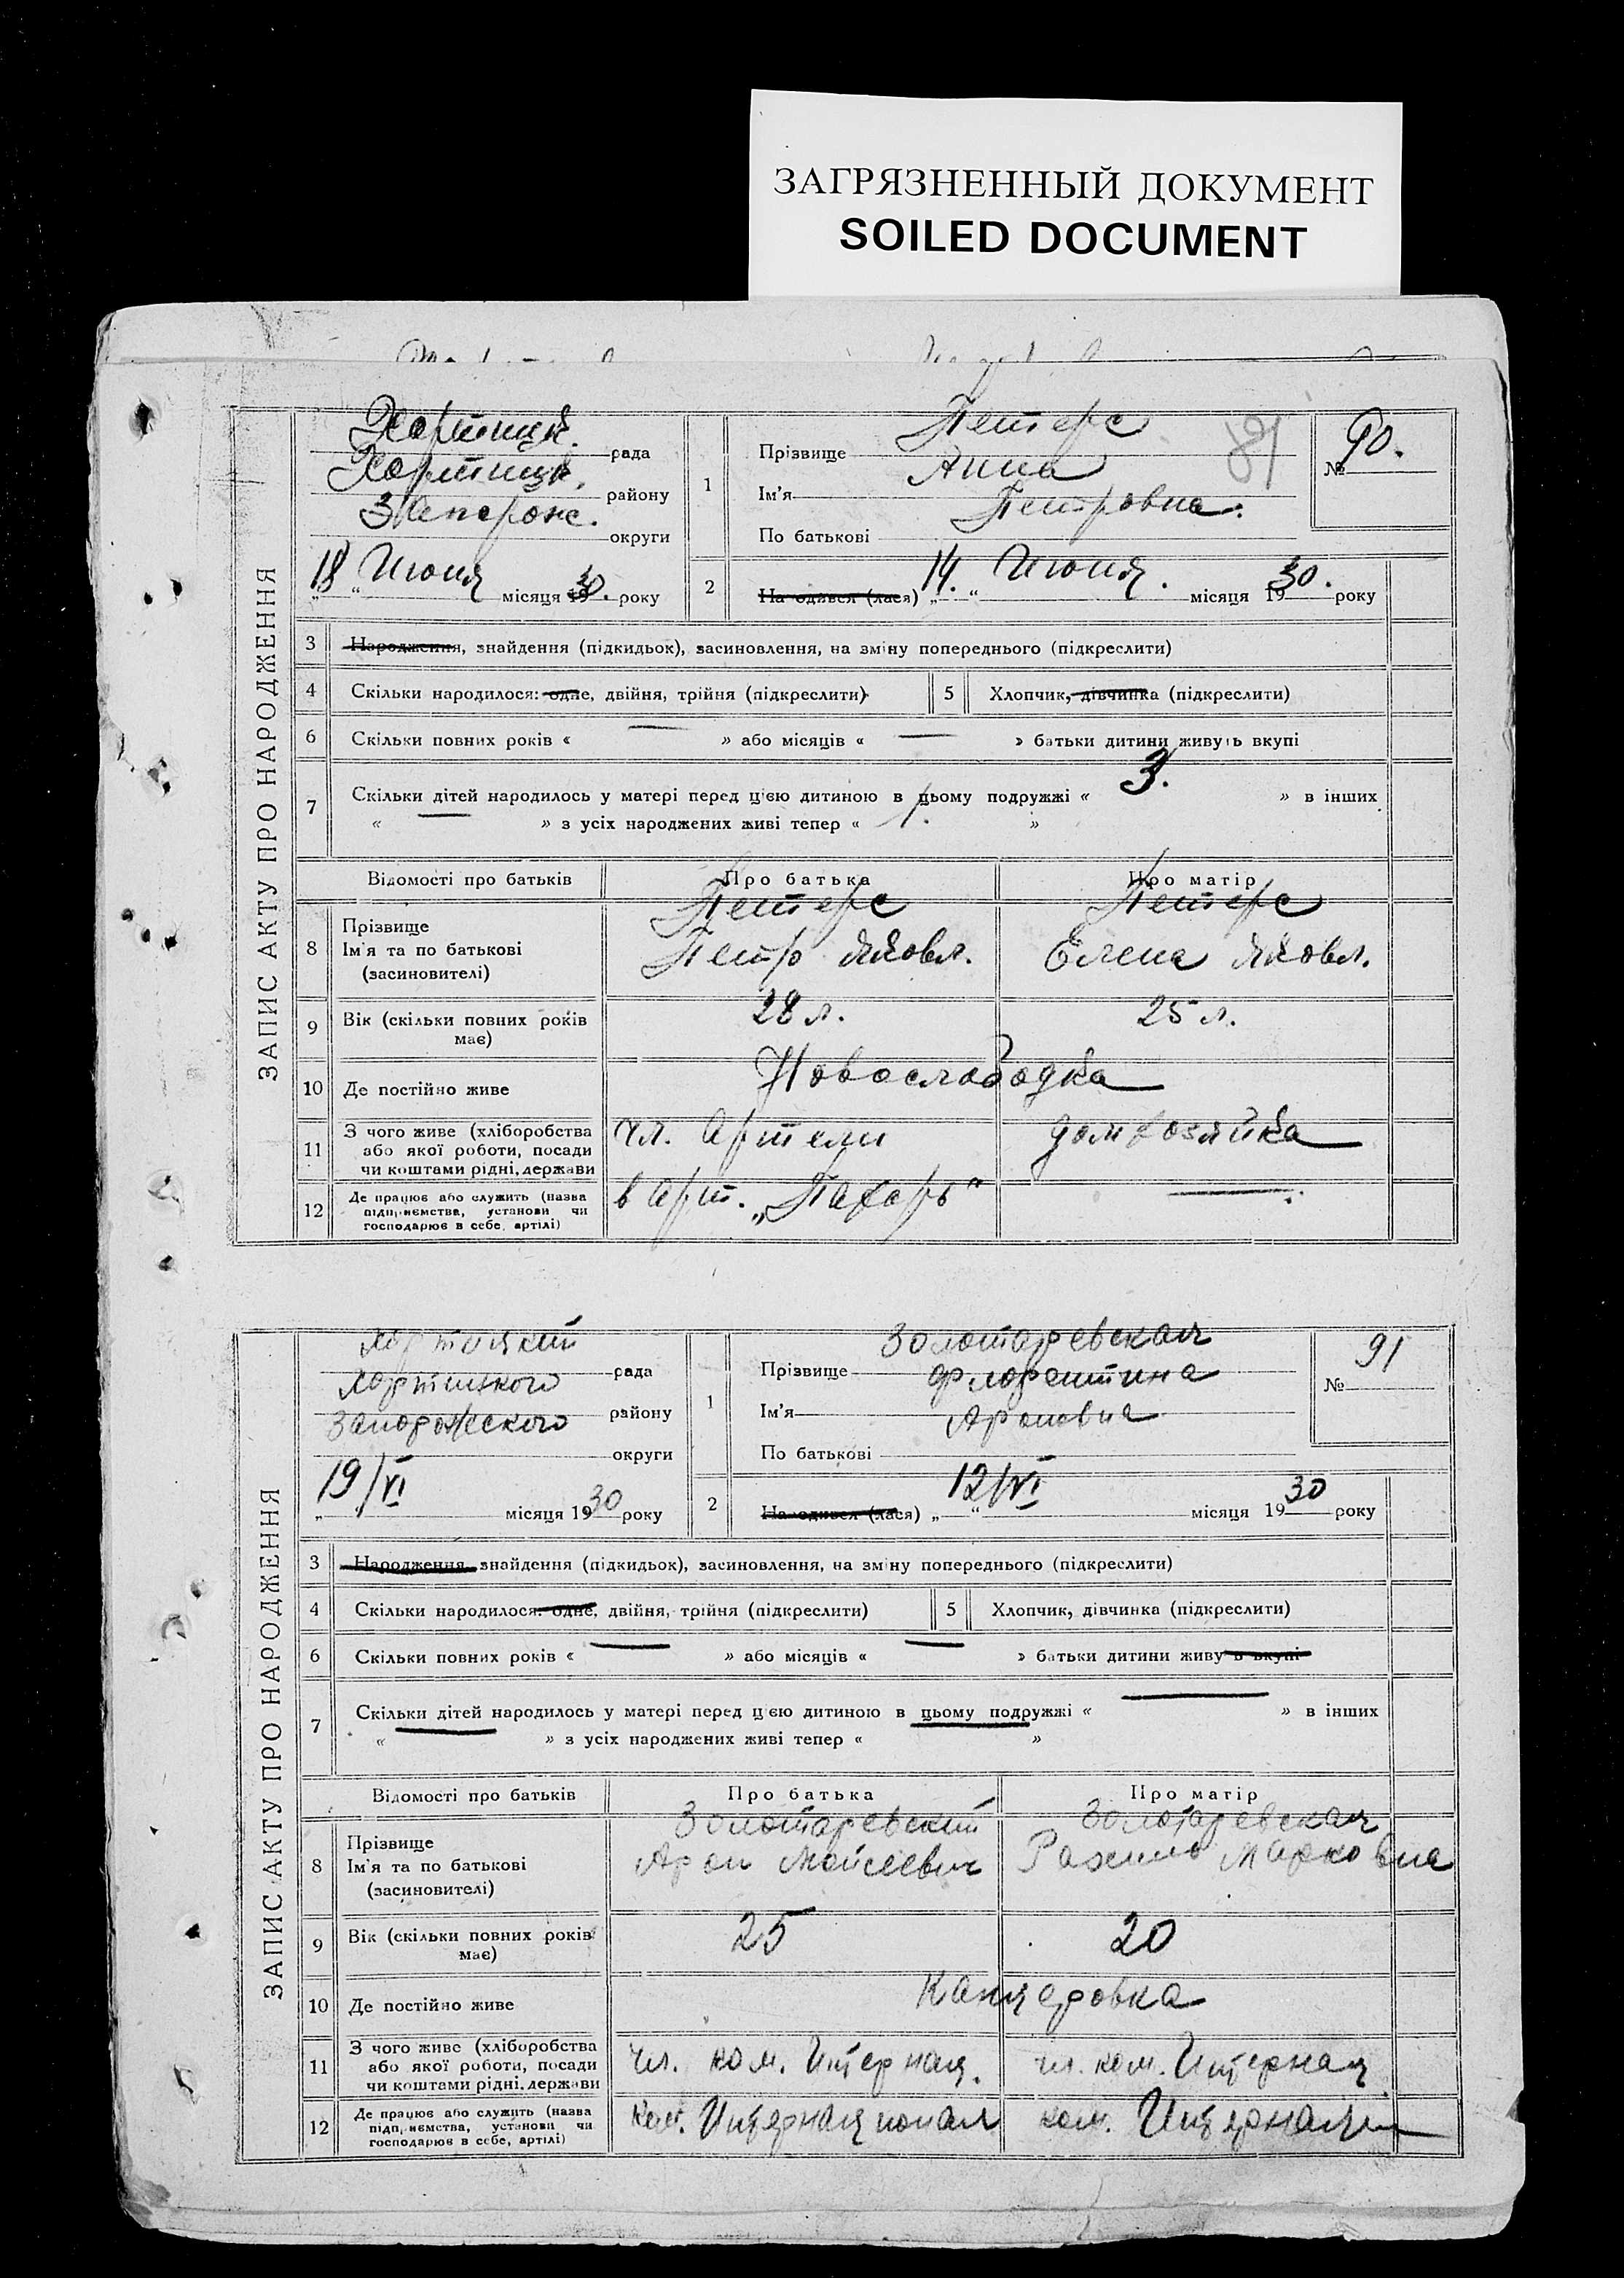 ЗАГРЯЗНЕННЫЙ ДОКУМЕНТ
SOILED DOCUMENT
ЗАПИС АКТУ ПРО НАРОДЖЕННЯ
Хортицк. рада
Хортицк. району
Запорож. округи
„18“ Июня місяця 1930. року
1
Прізвище Петерс
Ім'я Анна
По батькові Петровна.
81
№ 90.
2
Народився (лася) „14.“ Июня. місяця 1930. року
3 Народження, знайдення (підкидьок), засиновлення, на зміну попереднього (підкреслити)
4 Скільки народилося: одне, двійня, трійня (підкреслити)
5 Хлопчик, дівчинка (підкреслити)
6 Скільки повних років « — » або місяців « — » батьки дитини живуть вкупі
7 Скільки дітей народилось у матері перед цією дитиною в цьому подружжі « 3. » в інших
« — » з усіх народжених живі тепер « 1. »
Відомості про батьків Про батька Про матір
8 Прізвище Петерс Петерс
Ім'я та по батькові Петр Яковл. Елена Яковл.
(засиновителі)
9 Вік (скільки повних років має) 28 л. 25 л.
10 Де постійно живе Новослободка
11 З чого живе (хліборобства
або якої роботи, посади
чи коштами рідні, держави
чл. Артели домхозяйка
12 Де працює або служить (назва
підприємства, установи чи
господарює в себе, артілі)
в арт. „Пахарь“ —
ЗАПИС АКТУ ПРО НАРОДЖЕННЯ
Хортицкий рада
Хортицкого району
Запорожского округи
„19/VI місяця 1930 року
1
Прізвище Золотаревская
Ім'я Флорентина
По батькові Ароновна
№ 91
2
Народився (лася) „12/VI“ місяця 1930 року
3 Народження, знайдення (підкидьок), засиновлення, на зміну попереднього (підкреслити)
4 Скільки народилося: одне, двійня, трійня (підкреслити)
5 Хлопчик, дівчинка (підкреслити)
6 Скільки повних років « — » або місяців « — » батьки дитини живуть вкупі
7 Скільки дітей народилось у матері перед цією дитиною в цьому подружжі « — » в інших
« — » з усіх народжених живі тепер « »
Відомості про батьків Про батька Про матір
8 Прізвище Золотаревский Золотаревская
Ім'я та по батькові Арон Мойсеевич Рахиль Марковна
(засиновителі)
9 Вік (скільки повних років має) 25 20
10 Де постійно живе Канцеровка
11 З чого живе (хліборобства
або якої роботи, посади
чи коштами рідні, держави
чл. ком. Интернац. чл. ком. Интернац.
12 Де працює або служить (назва
підприємства, установи чи
господарює в себе, артілі)
Ком. Интернационал ком. Интернац